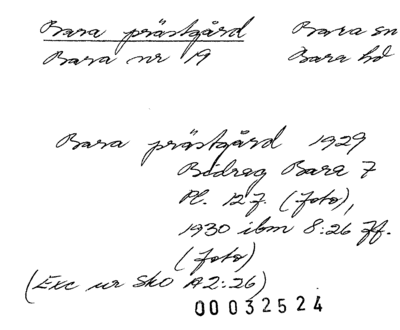 Bara prästgård Bara sn
Bara nr 19 Bara hd
Bara prästgård 1929
Bidrag Bara 7
Pl. 12 f. (foto),
1930 ibm 8:26 ff.
(foto)
(Exc ur SkO A2:26)
00032524